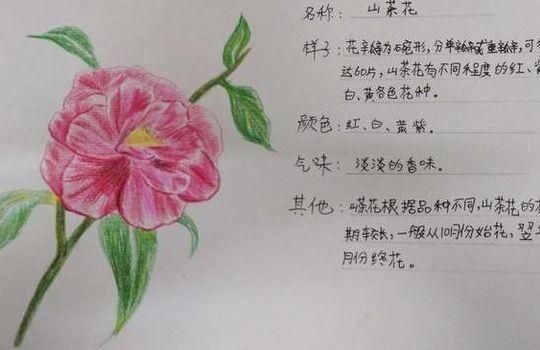 名称: 山茶花
样子: 花瓣为碗形,分单瓣或重瓣,可
达60片,山茶花有不同程度的红、
白、黄各色花种。
颜色: 红、白、黄紫。
气味: 淡淡的香味。
其他: 山茶花根据品种不同,山茶花的
期较长,一般从10月份始花,翌
月份终花。